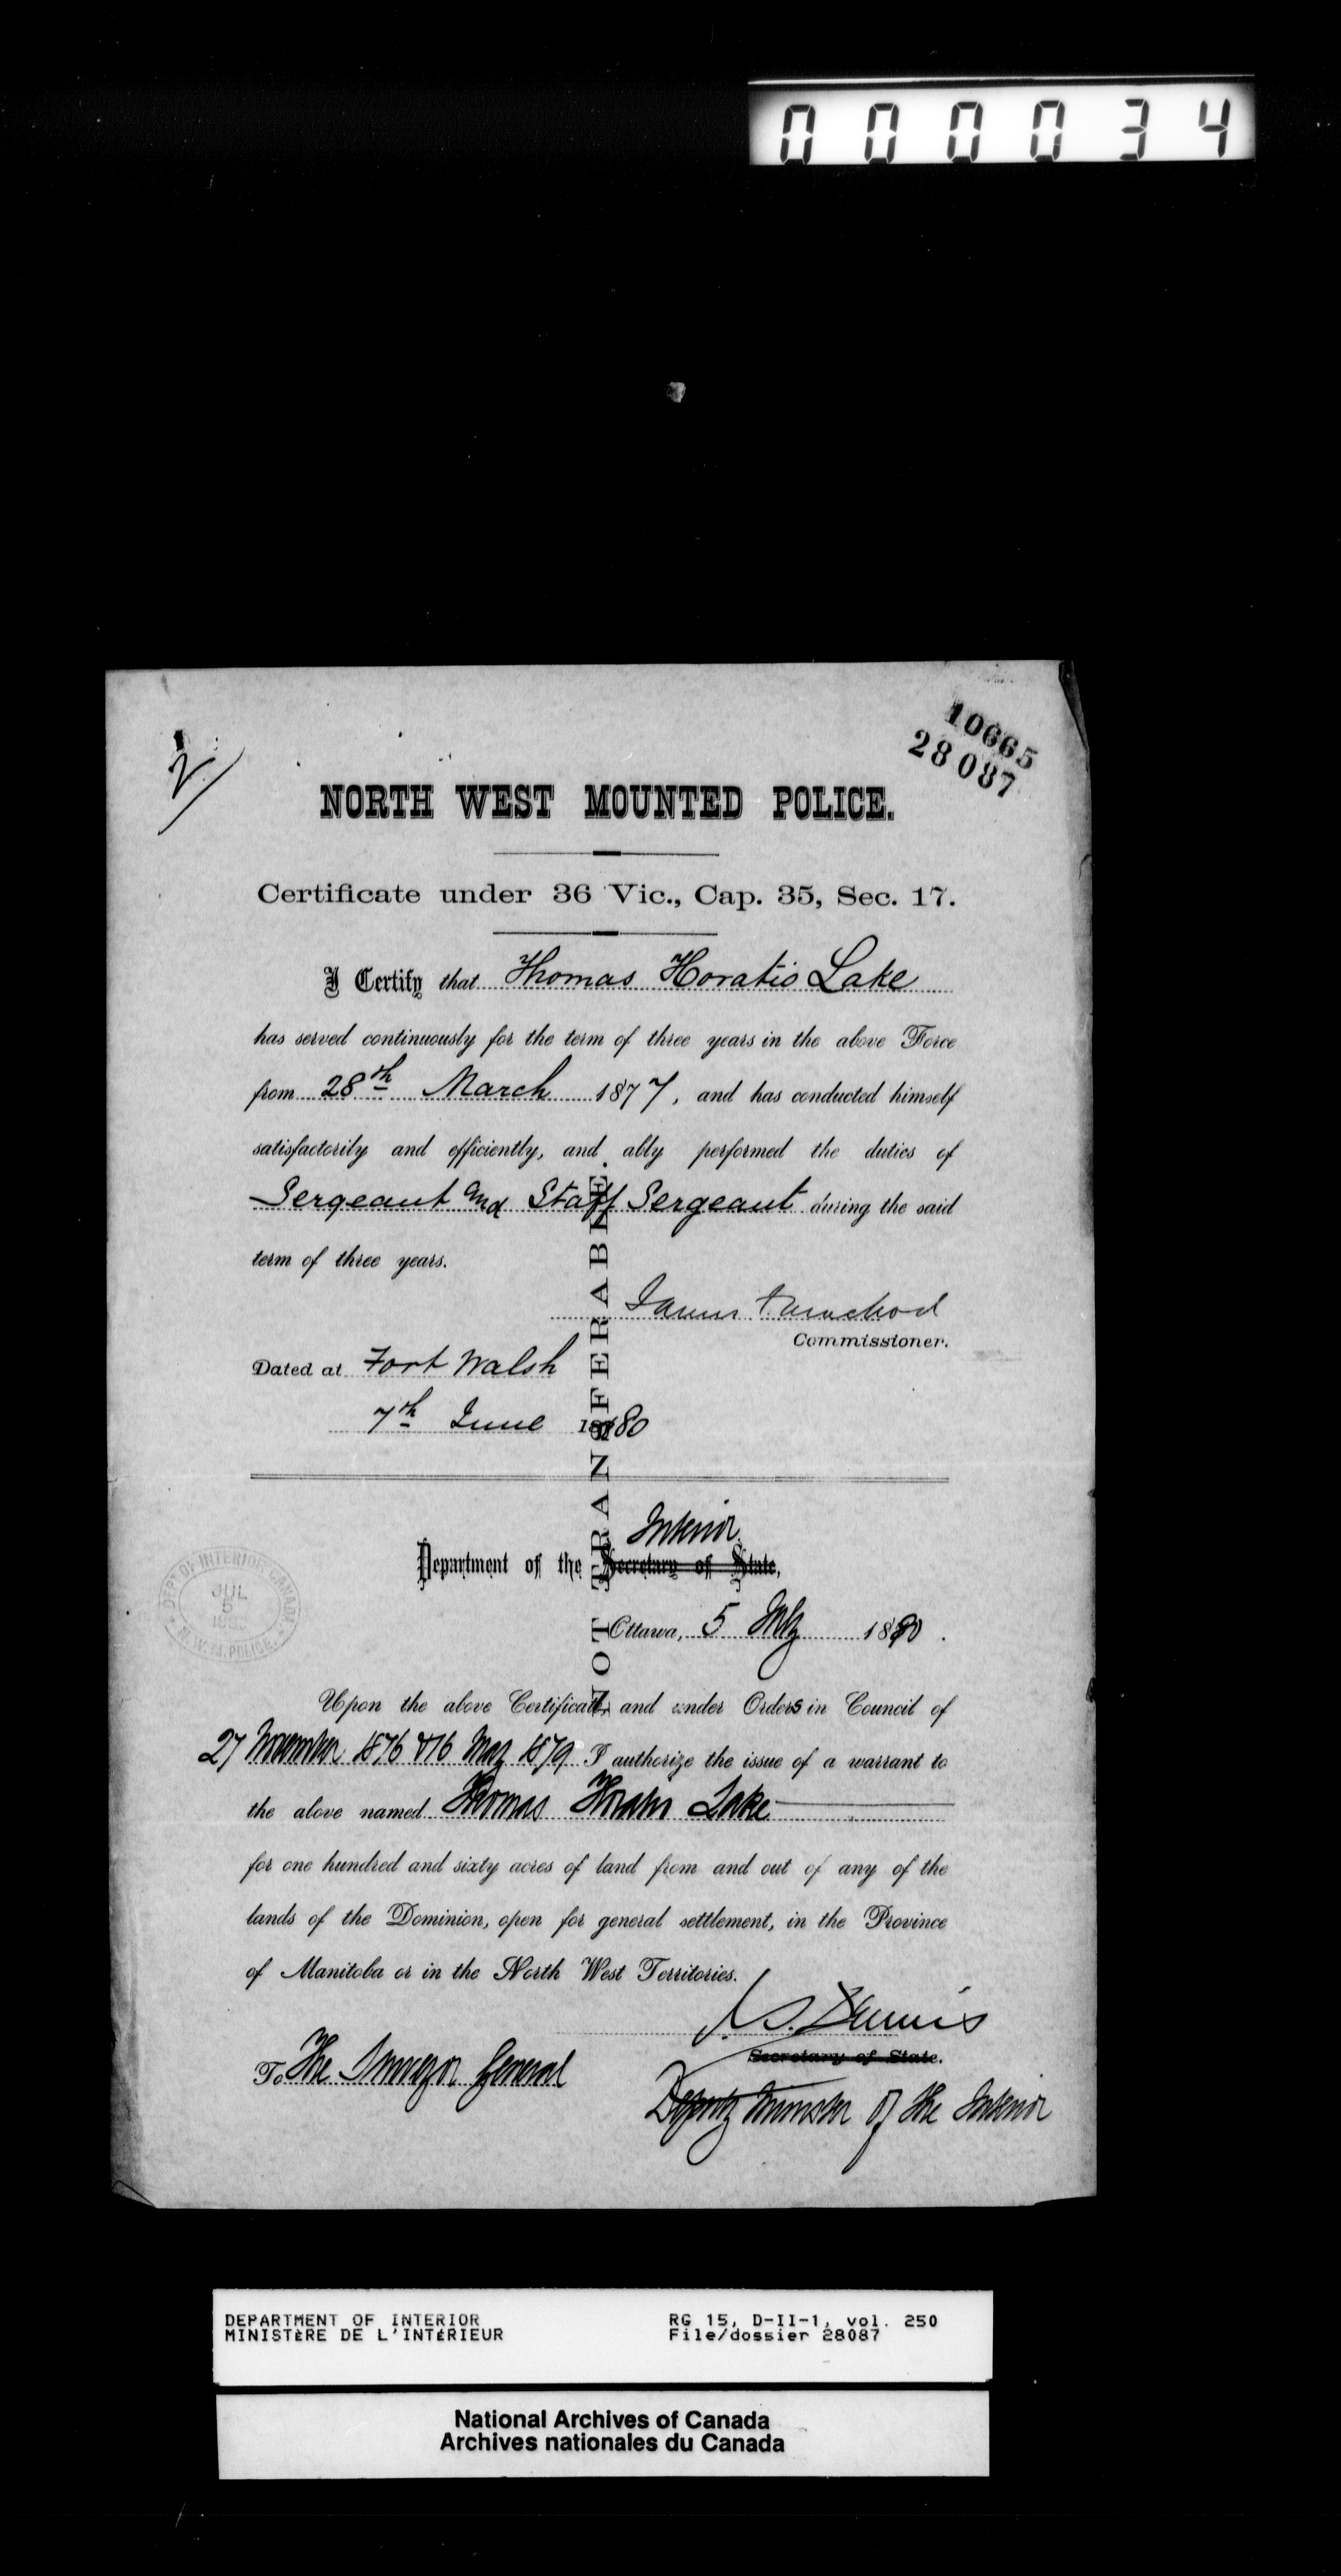 000034
10665
28087
2/
NORTH WEST MOUNTED POLICE.
Certificate under 36 Vic., Cap. 35, Sec. 17.
I Certify that Thomas Horatio Lake
has served continuously for the term of three years in the above Force
from 28th March 1877, and has conducted himself
satisfactorily and efficiently, and ably performed the duties of
Sergeant and Staff Sergeant during the said
term of three years.
James F. Macleod
Commissioner.
Dated at Fort Walsh
7th June 1880
NOT TRANSFERABLE.
Interior
Department of the Secretary of State,
Ottawa, 5 July 1880.
DEPT OF INTERIOR CANADA
JUL
5
1880
N.W.M. POLICE.
Upon the above Certificate, and under Orders in Council of
27 November 1876 & 16 May 1879 I authorize the issue of a warrant to
the above named Thomas Horatio Lake
for one hundred and sixty acres of land from and out of any of the
lands of the Dominion, open for general settlement, in the Province
of Manitoba or in the North West Territories.
J. S. Dennis
Secretary of State.
To The Surveyor General
Deputy Minister of the Interior
DEPARTMENT OF INTERIOR RG 15, D-II-1, vol. 250
MINISTÈRE DE L'INTÉRIEUR File/dossier 28087
National Archives of Canada
Archives nationales du Canada